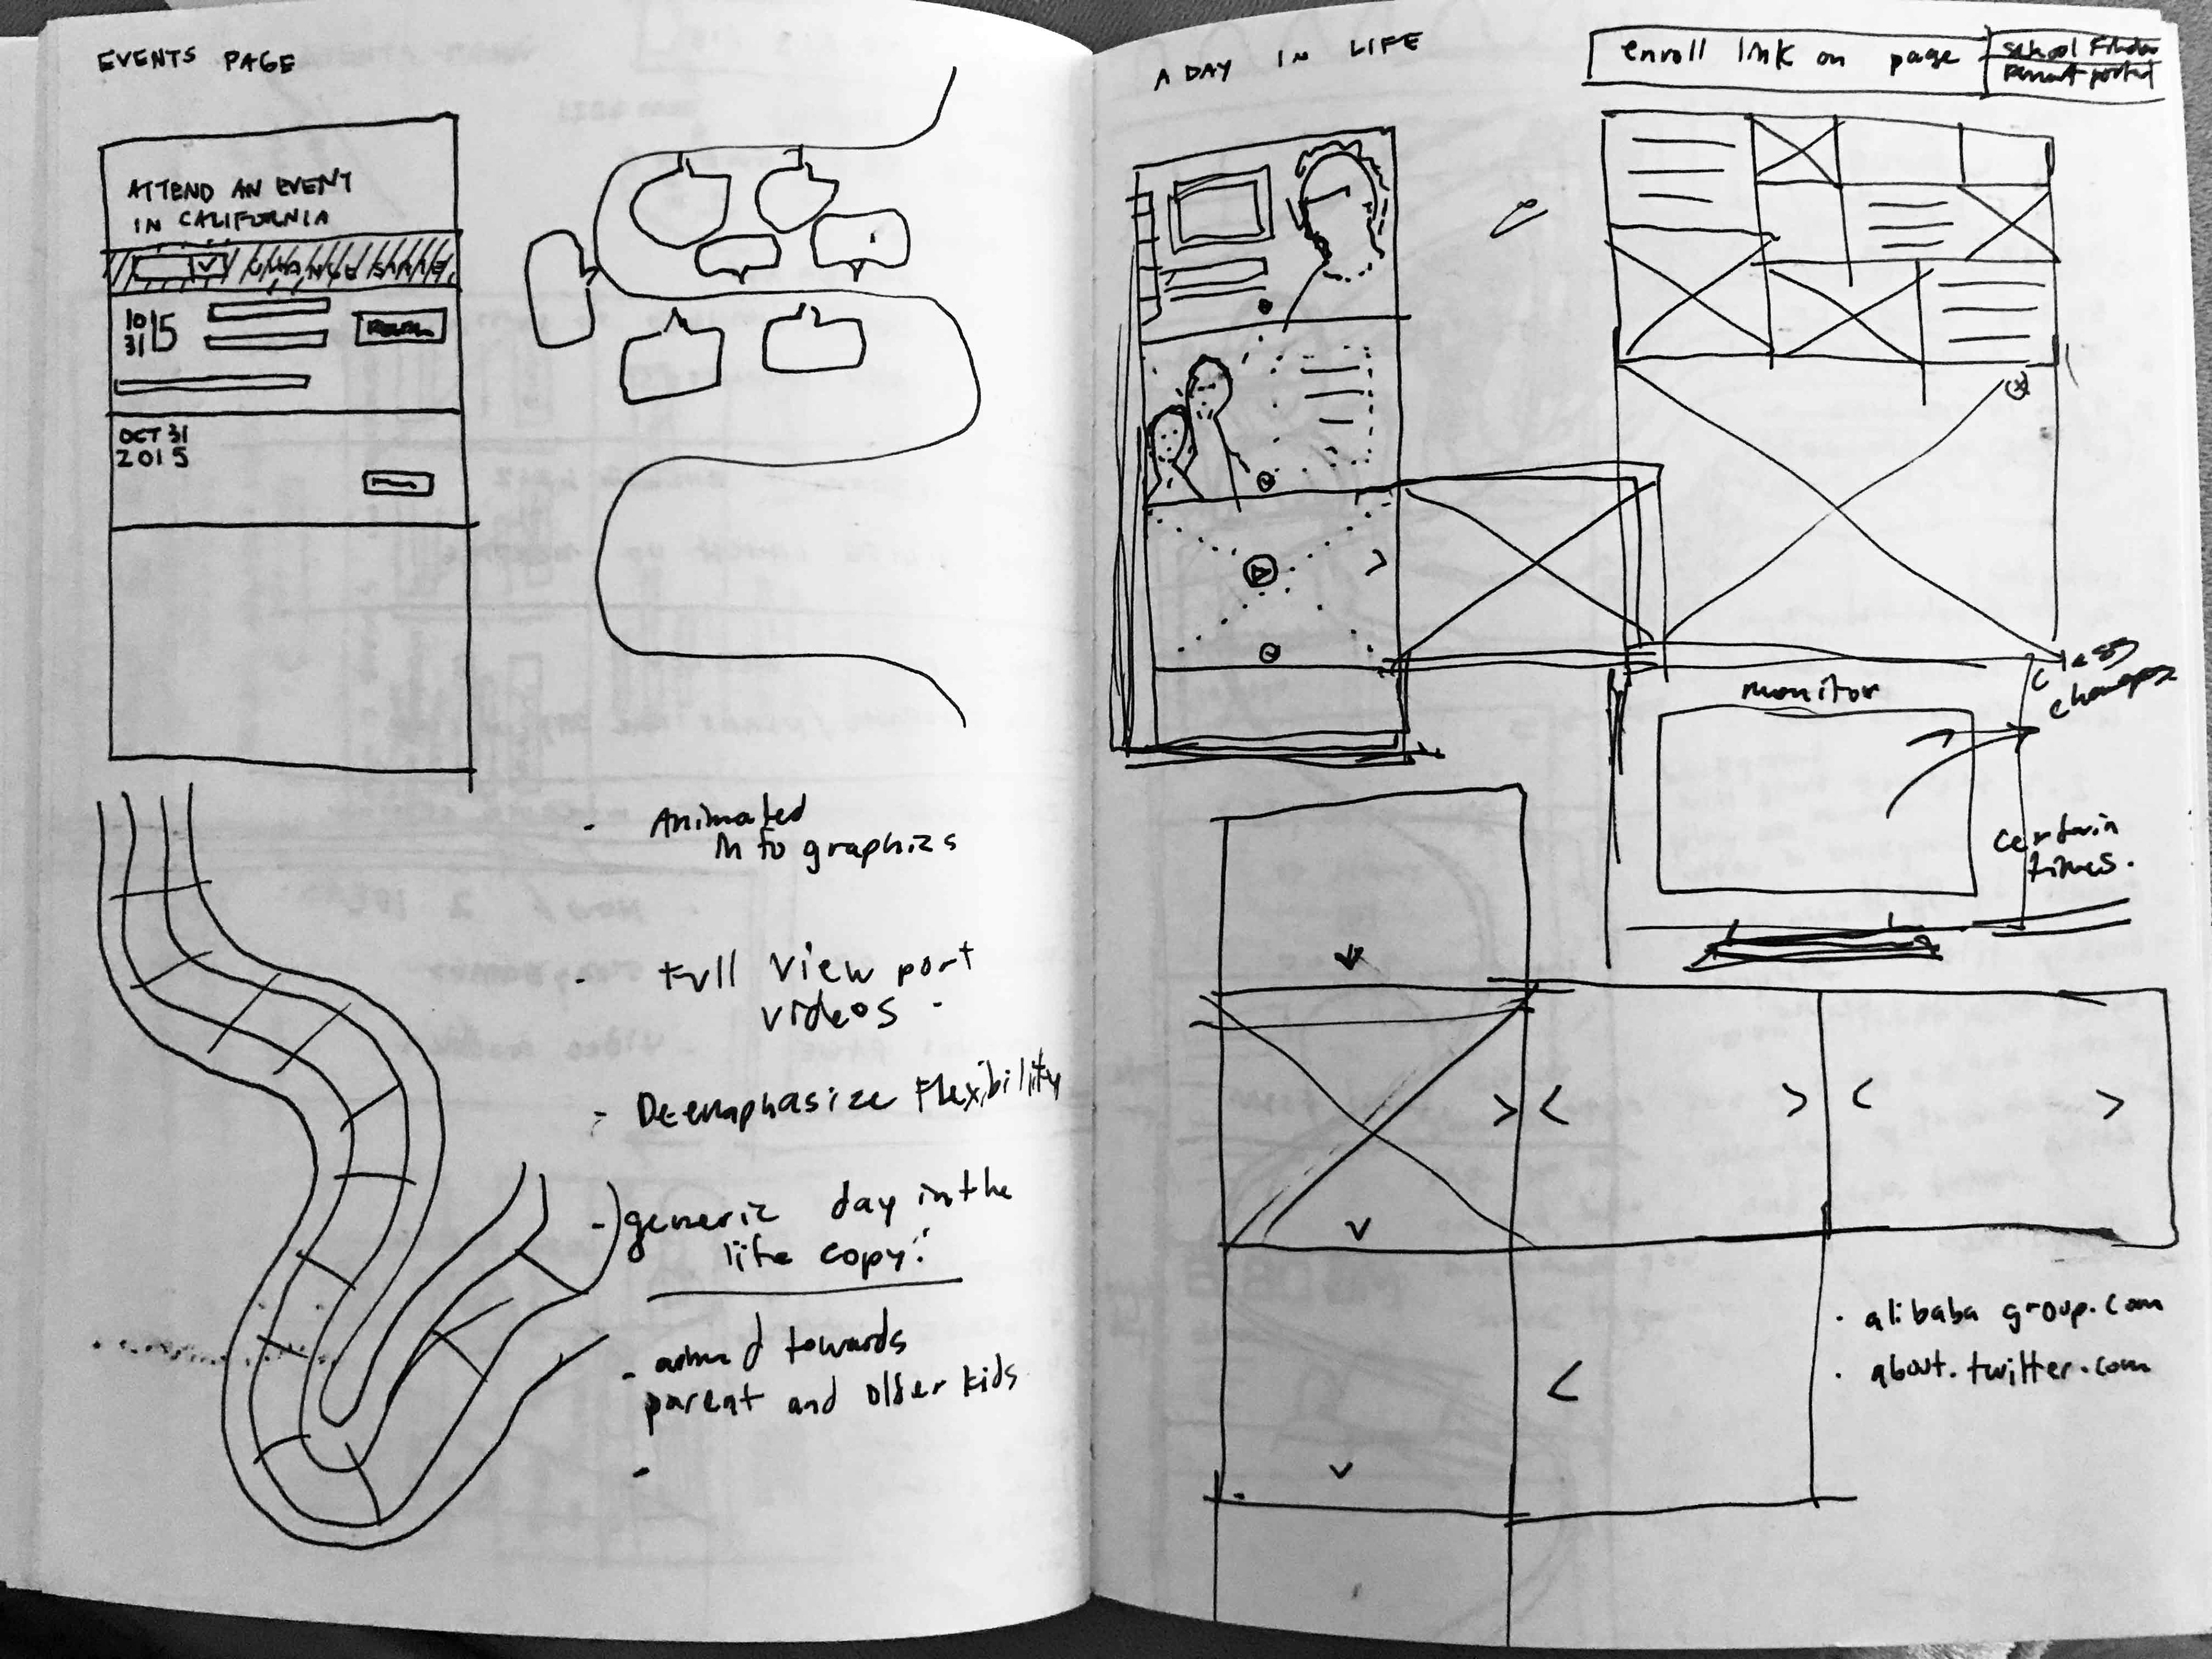 EVENTS PAGE
ATTEND AN EVENT
IN CALIFORNIA
CHANGE STATE
10
31
15
OCT 31
2015
- Animated
Infographics
- Full View port
videos
- Deemaphasize Flexibility
- generic day in the
life copy?
- aimed towards
parent and older kids
-
A DAY IN LIFE
enroll link on page
School Finder
Parent portal
monitor
changes
certain
times.
· alibaba group.com
· about.twitter.com